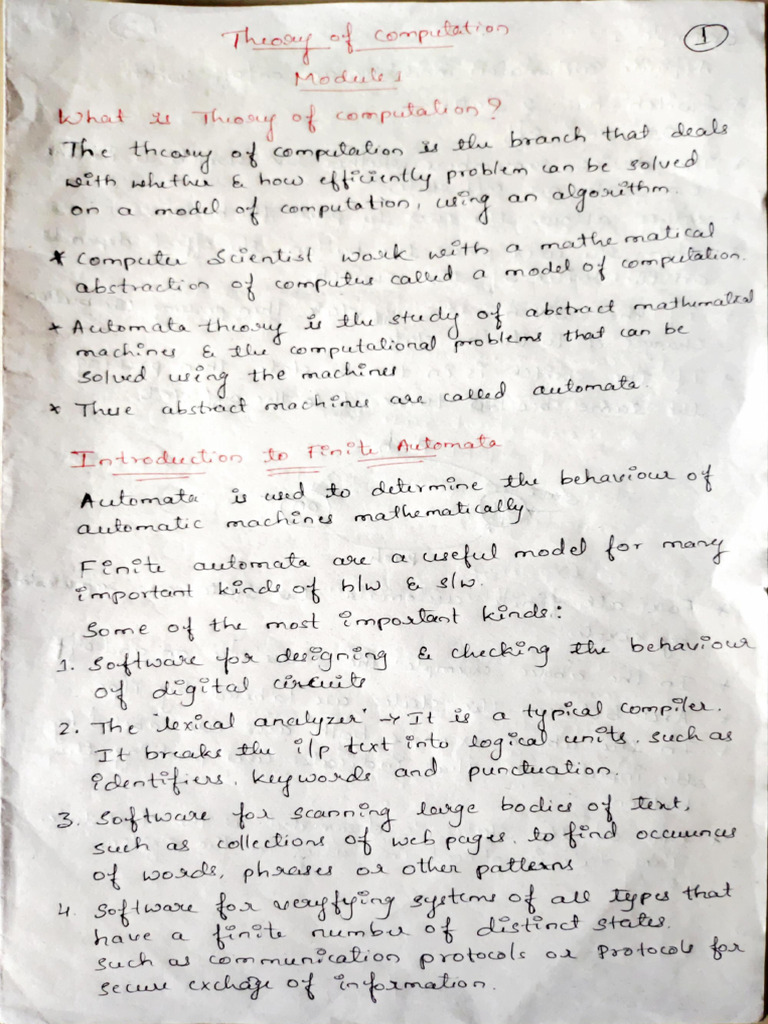 Theory of Computation
1
Module 1
What is Theory of computation?
The theory of computation is the branch that deals
with whether & how efficiently problem can be solved
on a model of computation, using an algorithm.
* Computer Scientist work with a mathematical
abstraction of computers called a model of computation.
* Automata theory is the study of abstract mathematical
machines & the computational problems that can be
solved using the machines
* These abstract machines are called automata.
Introduction to Finite Automata
Automata is used to determine the behaviour of
automatic machines mathematically
Finite automata are a useful model for many
important kinds of h/w & s/w.
Some of the most important kinds:
1. Software for designing & checking the behaviour
of digital circuits
2. The 'lexical analyzer' → It is a typical compiler.
It breaks the i/p text into logical units, such as
identifiers, keywords and punctuation.
3. Software for scanning large bodies of text,
such as collections of web pages, to find occurences
of words, phrases or other patterns
4. Software for veryfying systems of all types that
have a finite number of distinct states.
such as communication protocols or Protocols for
secure exchage of information.